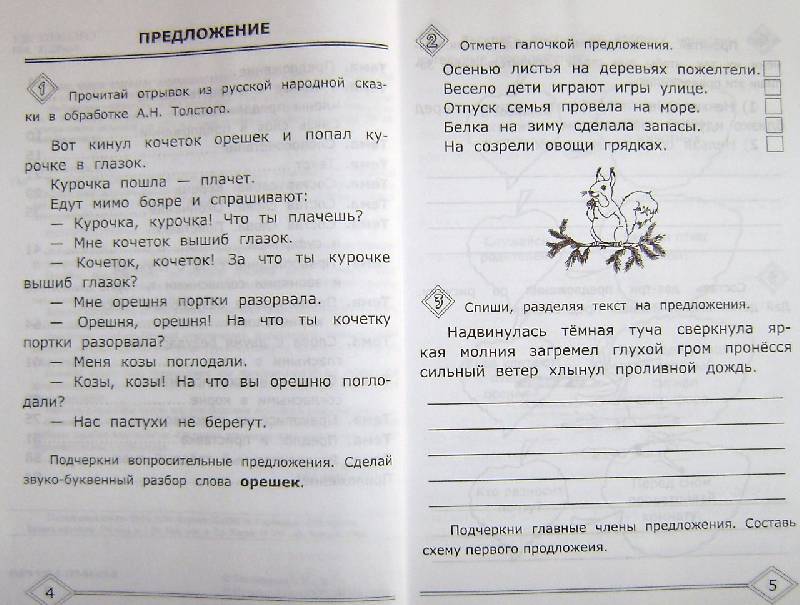 ПРЕДЛОЖЕНИЕ
1 Прочитай отрывок из русской народной сказ-
ки в обработке А.Н. Толстого.
Вот кинул кочеток орешек и попал ку-
рочке в глазок.
Курочка пошла — плачет.
Едут мимо бояре и спрашивают:
— Курочка, курочка! Что ты плачешь?
— Мне кочеток вышиб глазок.
— Кочеток, кочеток! За что ты курочке
вышиб глазок?
— Мне орешня портки разорвала.
— Орешня, орешня! На что ты кочетку
портки разорвала?
— Меня козы поглодали.
— Козы, козы! На что вы орешню погло-
дали?
— Нас пастухи не берегут.
Подчеркни вопросительные предложения. Сделай
звуко-буквенный разбор слова орешек.
4
2 Отметь галочкой предложения.
Осенью листья на деревьях пожелтели.
Весело дети играют игры улице.
Отпуск семья провела на море.
Белка на зиму сделала запасы.
На созрели овощи грядках.
3 Спиши, разделяя текст на предложения.
Надвинулась тёмная туча сверкнула яр-
кая молния загремел глухой гром пронёсся
сильный ветер хлынул проливной дождь.
Подчеркни главные члены предложения. Составь
схему первого продложеия.
5